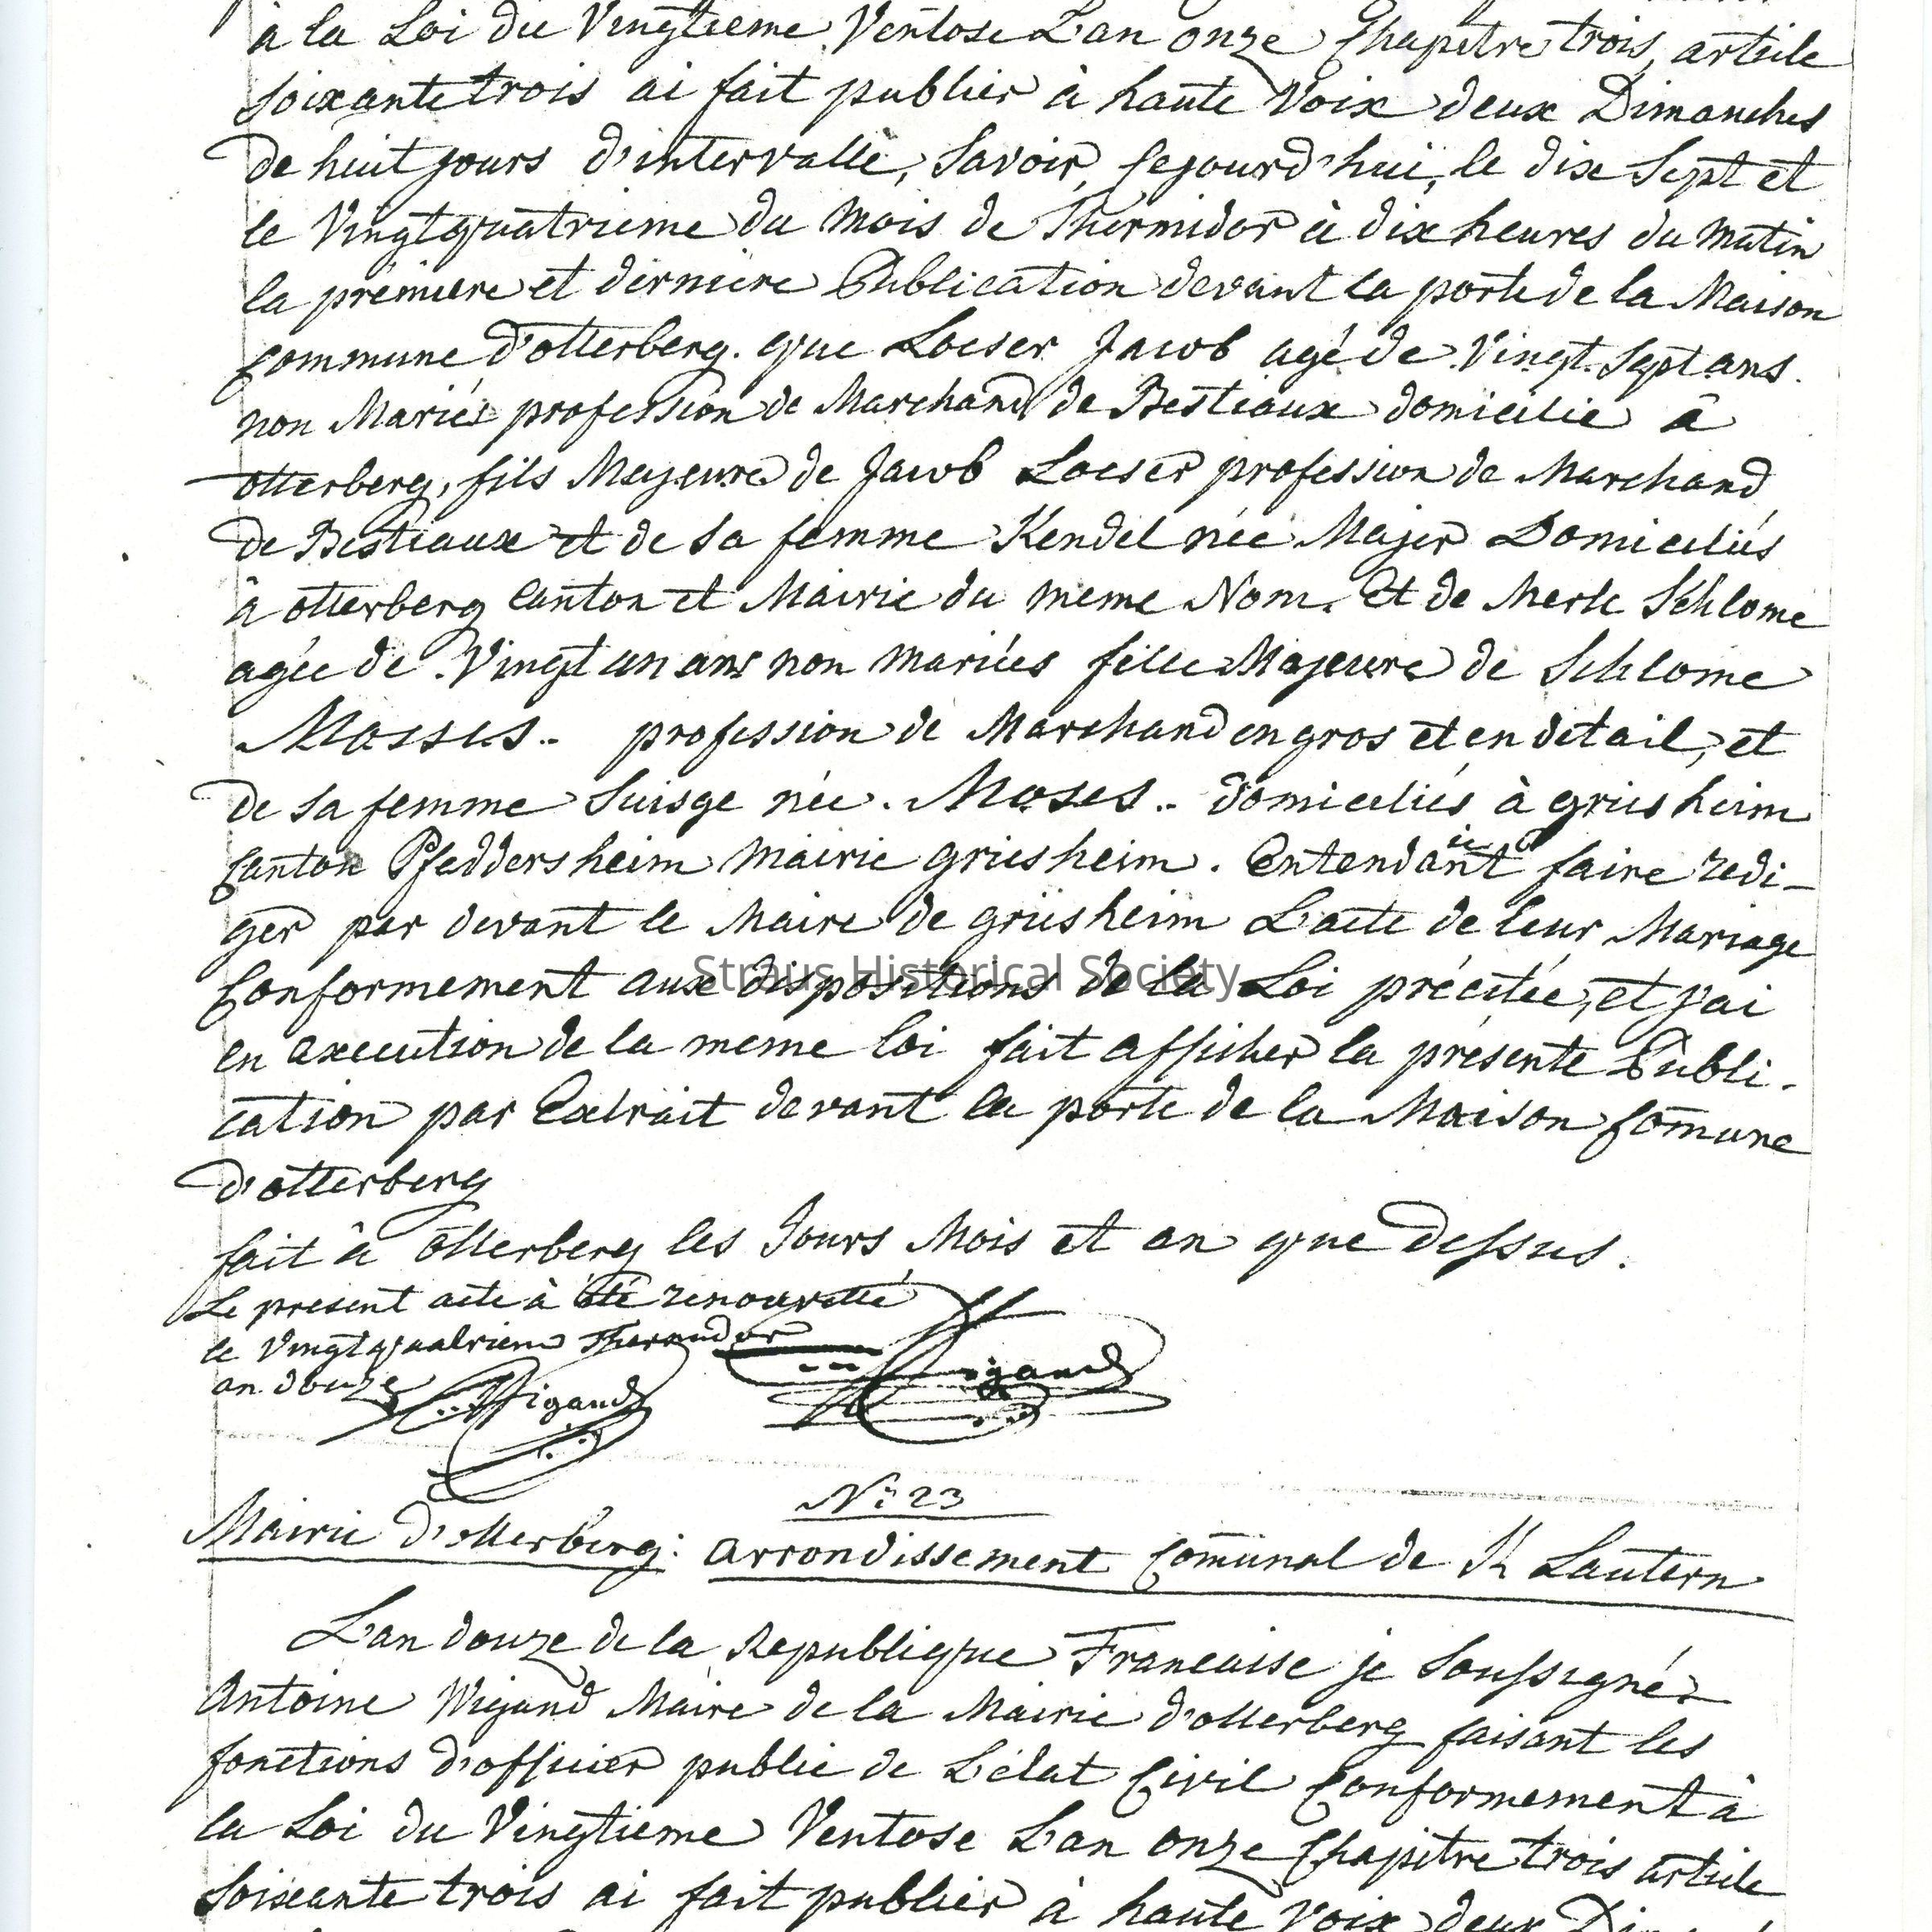 à la Loi du Vingtieme Ventose L'an onze Chapitre trois, article
soixante trois ai fait publier à haute Voix deux Dimanches
de huit jours d'intervalle, Savoir, Cejourd'hui, le dix Sept et
le Vingtquatrieme du Mois de Thermidor à dix heures du Matin
la premiere et derniere Publication devant la porte de la Maison
Commune d'otterberg. que Loeser Jacob agé de Vingt Sept ans.
non Mariés profession de Marchand de Bestiaux domicilie â
otterberg, fils Majeure de Jacob Loeser profession de Marchand
de Bestiaux et de Sa femme Kendel née Majer Domiciliés
â otterberg Canton et Mairie du meme Nom. Et de Merle Schlome
agée de Vingt un ans non mariées fille Majeure de Schlome
Mosses.. profession de Marchand en gros et en détail, et
de Sa femme Suisge née. Moses.. domiciliés à griesheim
Canton Pfeddersheim Mairie griesheim. Entendant faire redi-
ger par devant le Maire de griesheim L'acte de leur Mariage
Straus Historical Society
Conformement aux dispositions de la Loi précitée, et j'ai
en execution de la meme loi fait afficher la présente Publi-
cation par Extrait devant la porte de la Maison Comune
d'otterberg
fait â Otterberg les Jours Mois et an que dessus.
Le present acte à été renouvellé
le Vingtquatrieme Thermidor
an douze Wigand Wigand
N° 23
Mairie d'otterberg: arrondissement Comunal de K Lautern
L'an douze de la Republique Francaise je Soussigné
Antoine Wigand Maire de la Mairie d'otterberg faisant les
fonctions d'officier public de L'état Civil Conformement à
la Loi du Vingtieme Ventose L'an onze Chapitre trois article
Soixante trois ai fait publier à haute Voix deux